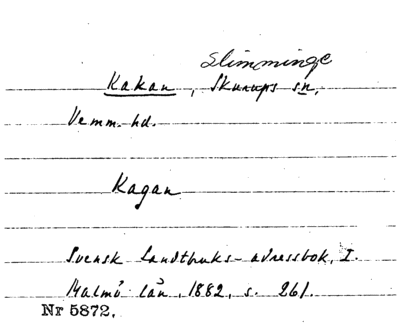 Slimminge
Kakan, Skurups sn,
Vemm. hd.
Kagan
Svensk Landtbruks-adressbok, I.
Malmö län, 1882, s. 261.
Nr 5872.